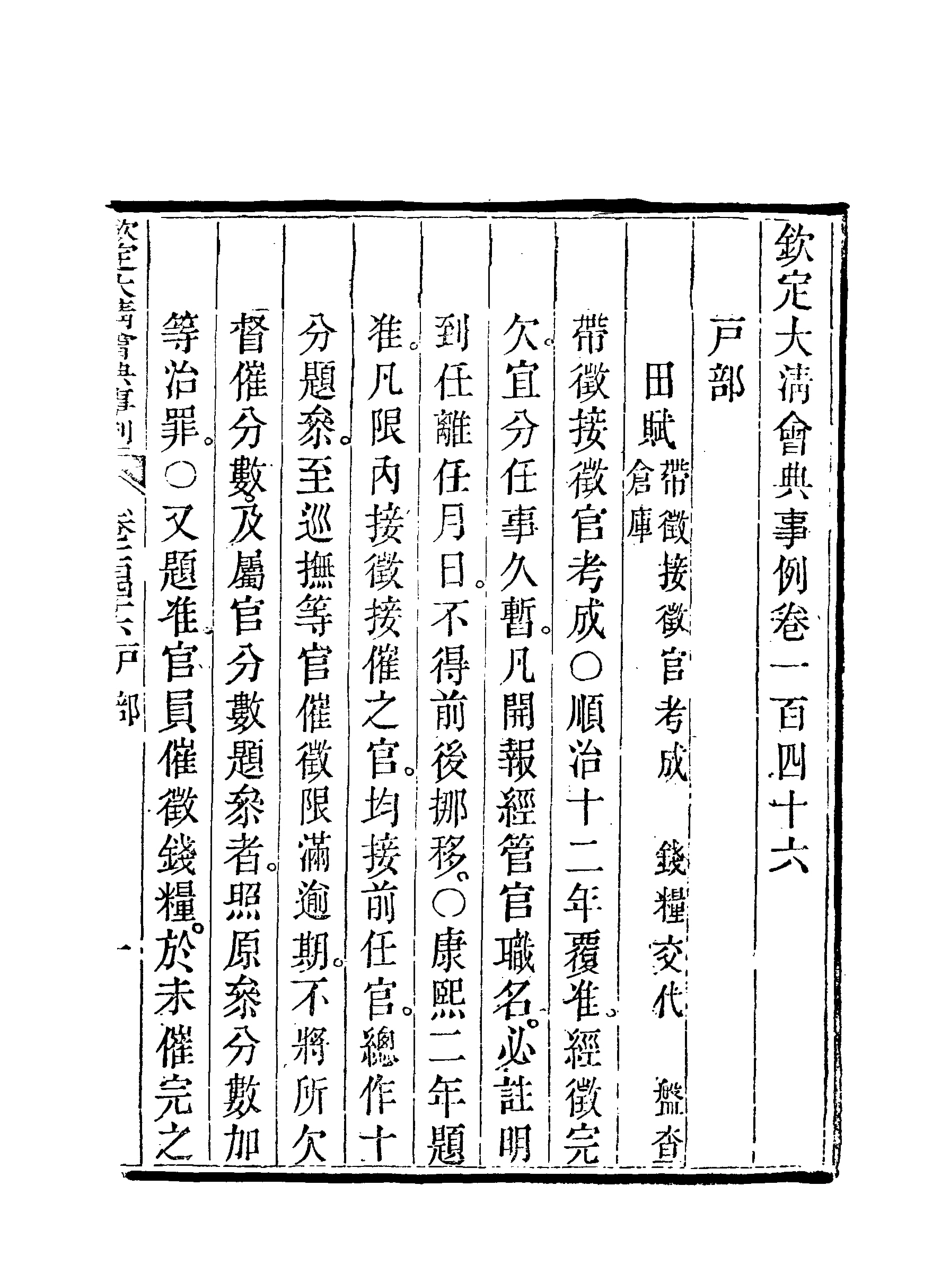 欽定大淸會典事例卷一百四十六
戸部
田賦帶徵接徵官考成 錢糧交代 盤查
倉庫
帶徵接徵官考成○順治十二年覆准。經徵完
欠。宜分任事久暫。凡開報經管官職名。必註明
到任離任月日。不得前後挪移。○康熙二年題
准。凡限內接徵接催之官。均接前任官。總作十
分題叅。至巡撫等官催徵限滿逾期。不將所欠
督催分數。及屬官分數題叅者。照原叅分數加
等治罪。○又題准。官員催徵錢糧。於未催完之
欽定大淸會典事例 卷一百四十六 戸部 一